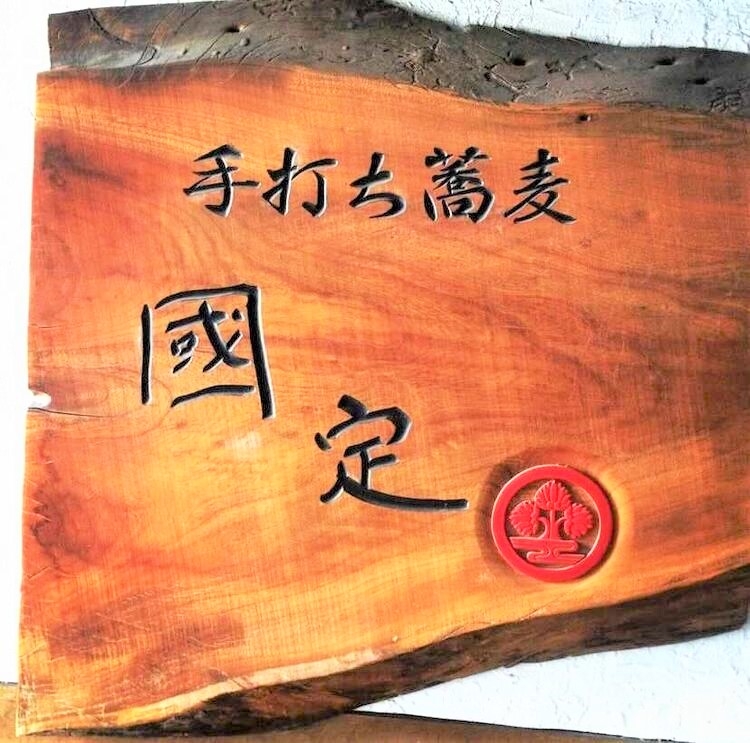 手打ち蕎麦
國定